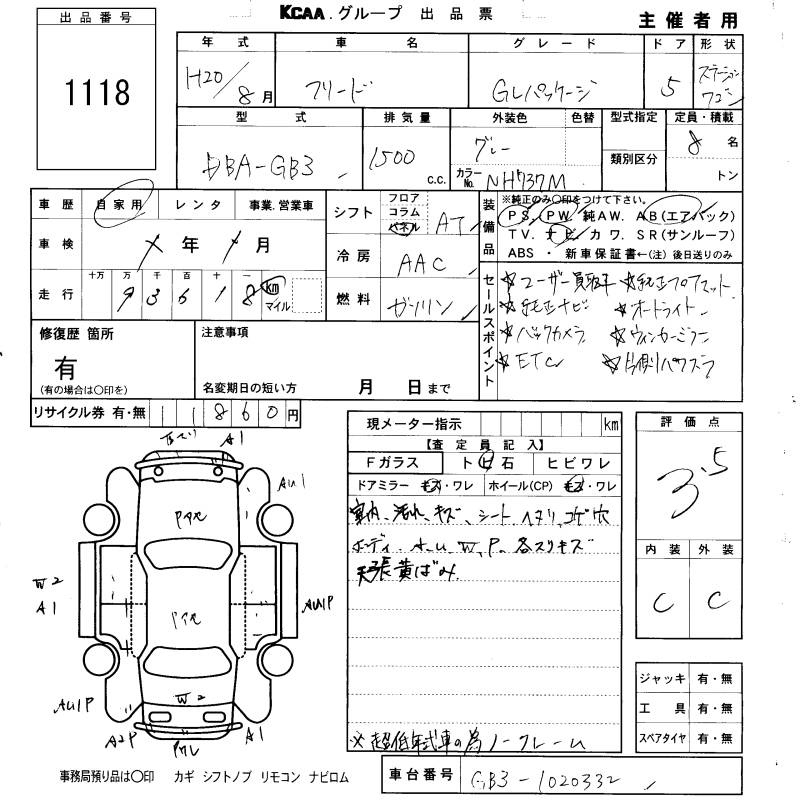 出品番号
1118
KCAA.グループ 出品票
主催者用
年式 車名 グレード ドア 形状
H20/8月 フリード Gレパッケージ 5 ステーションワゴン
型式 排気量 外装色 色替 型式指定 定員・積載
DBA-GB3 1500 c.c. グレー 類別区分 8名
カラーNo. NH737M トン
車歴 自家用 レンタ 事業.営業車
シフト フロア コラム パネル AT
装備品 ※純正のみ○印をつけて下さい。
PS. PW. 純AW. AB(エアバック)
TV. ナビ カワ. SR(サンルーフ)
ABS ・ 新車保証書←(注)後日送りのみ
車検 年 月
冷房 AAC
走行 十万 万 千 百 十 一
9 3 6 1 8 km マイル
燃料 ガソリン
セールスポイント
☆ユーザー買取車 ☆純正フロアマット
☆純正ナビ ☆オートライト
☆バックカメラ ☆ウィンカーミラー
☆ETC ☆片側パワスラ
修復歴 箇所
有
(有の場合は○印を)
注意事項
名変期日の短い方 月 日まで
リサイクル券 有・無 11860円
現メーター指示 km
【査定員記入】
Fガラス トビ石 ヒビワレ
ドアミラー キズ・ワレ ホイール(CP) キズ・ワレ
室内、汚れ、キズ、シート、ヘタリ、コゲ穴
ボディ、A.U.W.P.各スリキズ
天張黄ばみ
※超低年式車の為ノークレーム
評価点
3.5
内装 外装
C C
ジャッキ 有・無
工具 有・無
スペアタイヤ 有・無
A1
AU1
W2
A1
AU1P
W2
AU1P
A2P
ワレ
A1
事務局預り品は○印 カギ シフトノブ リモコン ナビロム
車台番号 GB3-1020332